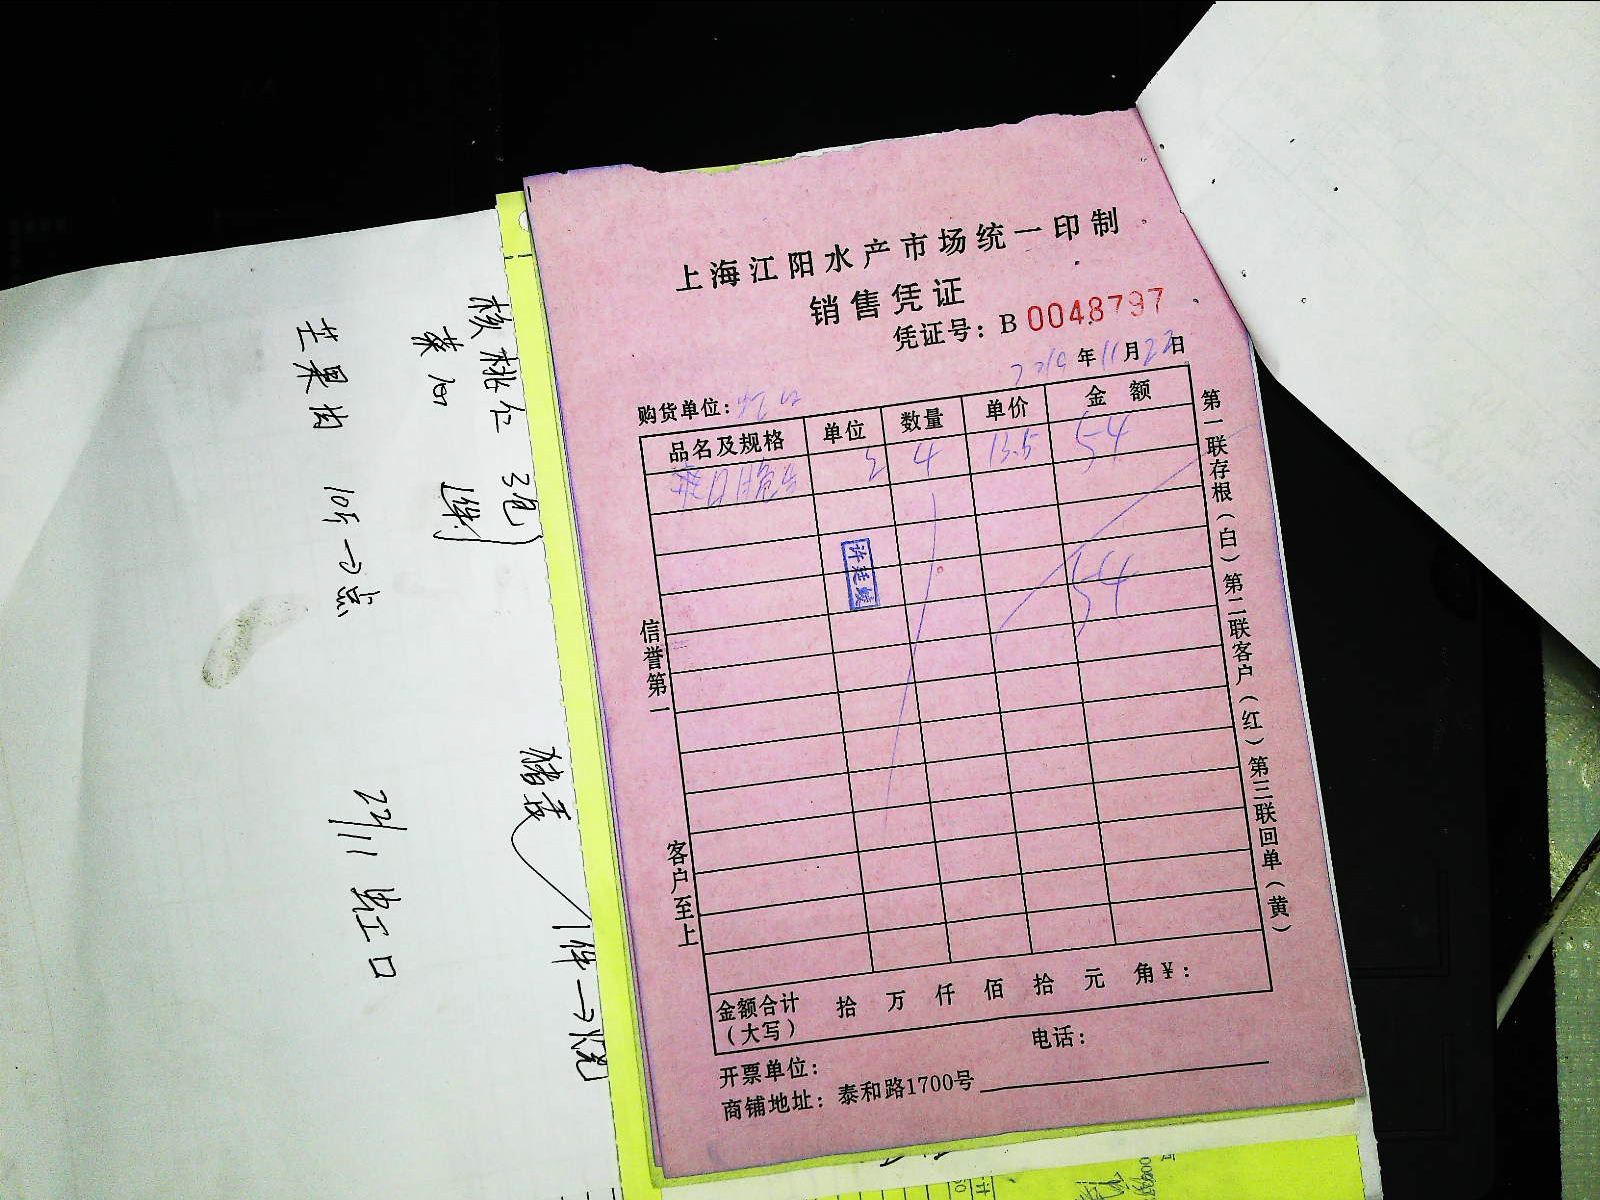 上海江阳水产市场统一印制
销售凭证
凭证号：B 0048797
年11月22日
购货单位：虹口
品名及规格 单位 数量 单价 金额
4 13.5 54
54
许廷媛
信誉第一 客户至上
第一联存根（白）第二联客户（红）第三联回单（黄）
金额合计（大写） 拾 万 仟 佰 拾 元 角 ¥：
开票单位： 电话：
商铺地址：泰和路1700号
核桃仁 3包
芒果肉 10斤
22/11 虹口
1件